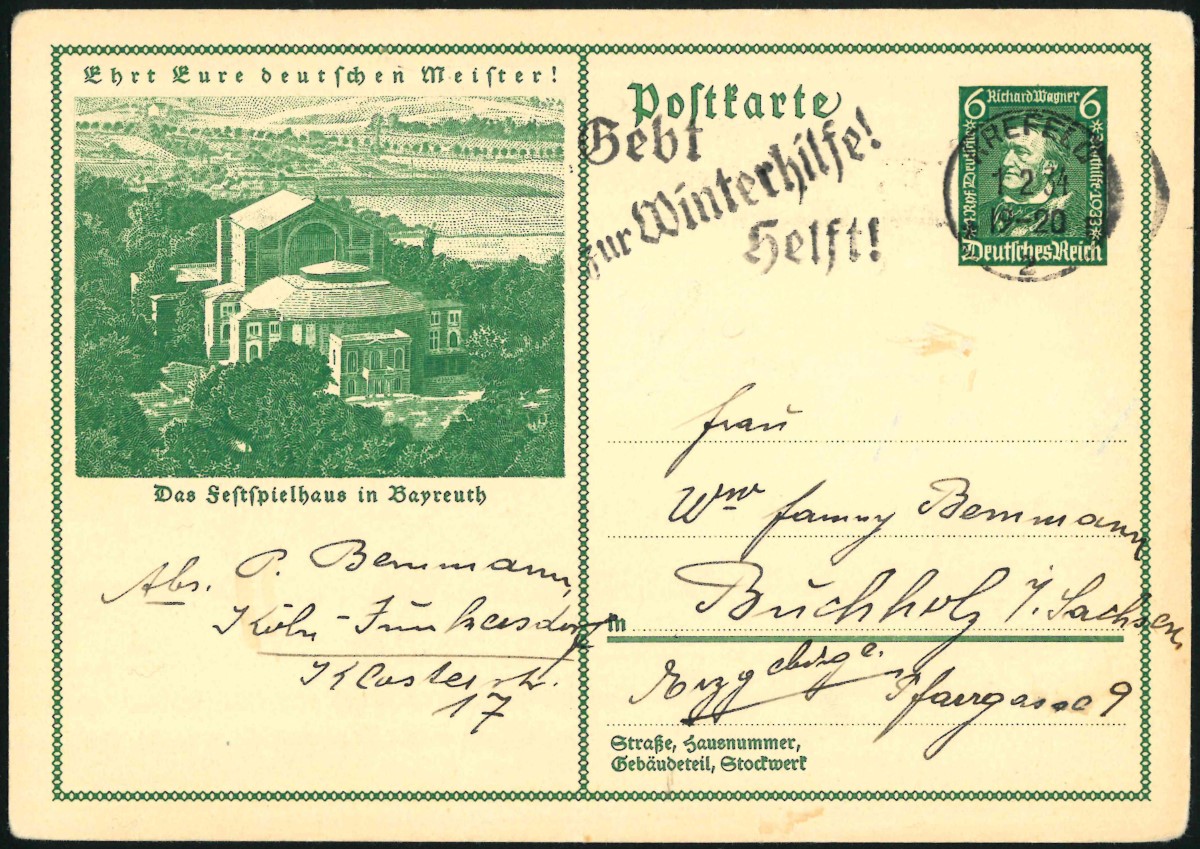 Ehrt Eure deutschen Meister!
Das Festspielhaus in Bayreuth
Abs. P. Bemmann,
Köln-Junkersdorf
Klosterstr.
17
Postkarte
Gebt
zur Winterhilfe!
Helft!
6 Richard Wagner 6
Deutsches Reich
KREFELD
1.2.34
19-20
2
Frau
Ww Fanny Bemmann
in Buchholz i. Sachsen
Erzgebirge. Pfarrgasse 9
Straße, Hausnummer,
Gebäudeteil, Stockwerk